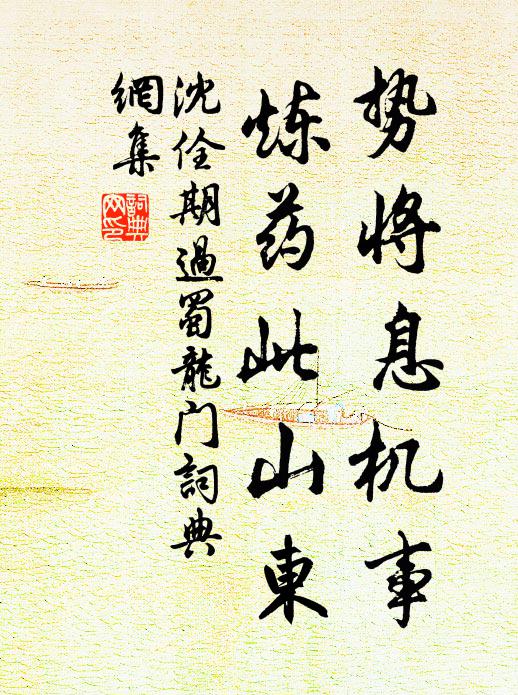 势将息机事
炼药此山東
沈佺期過蜀龍门詞典
網集
詞典
网印